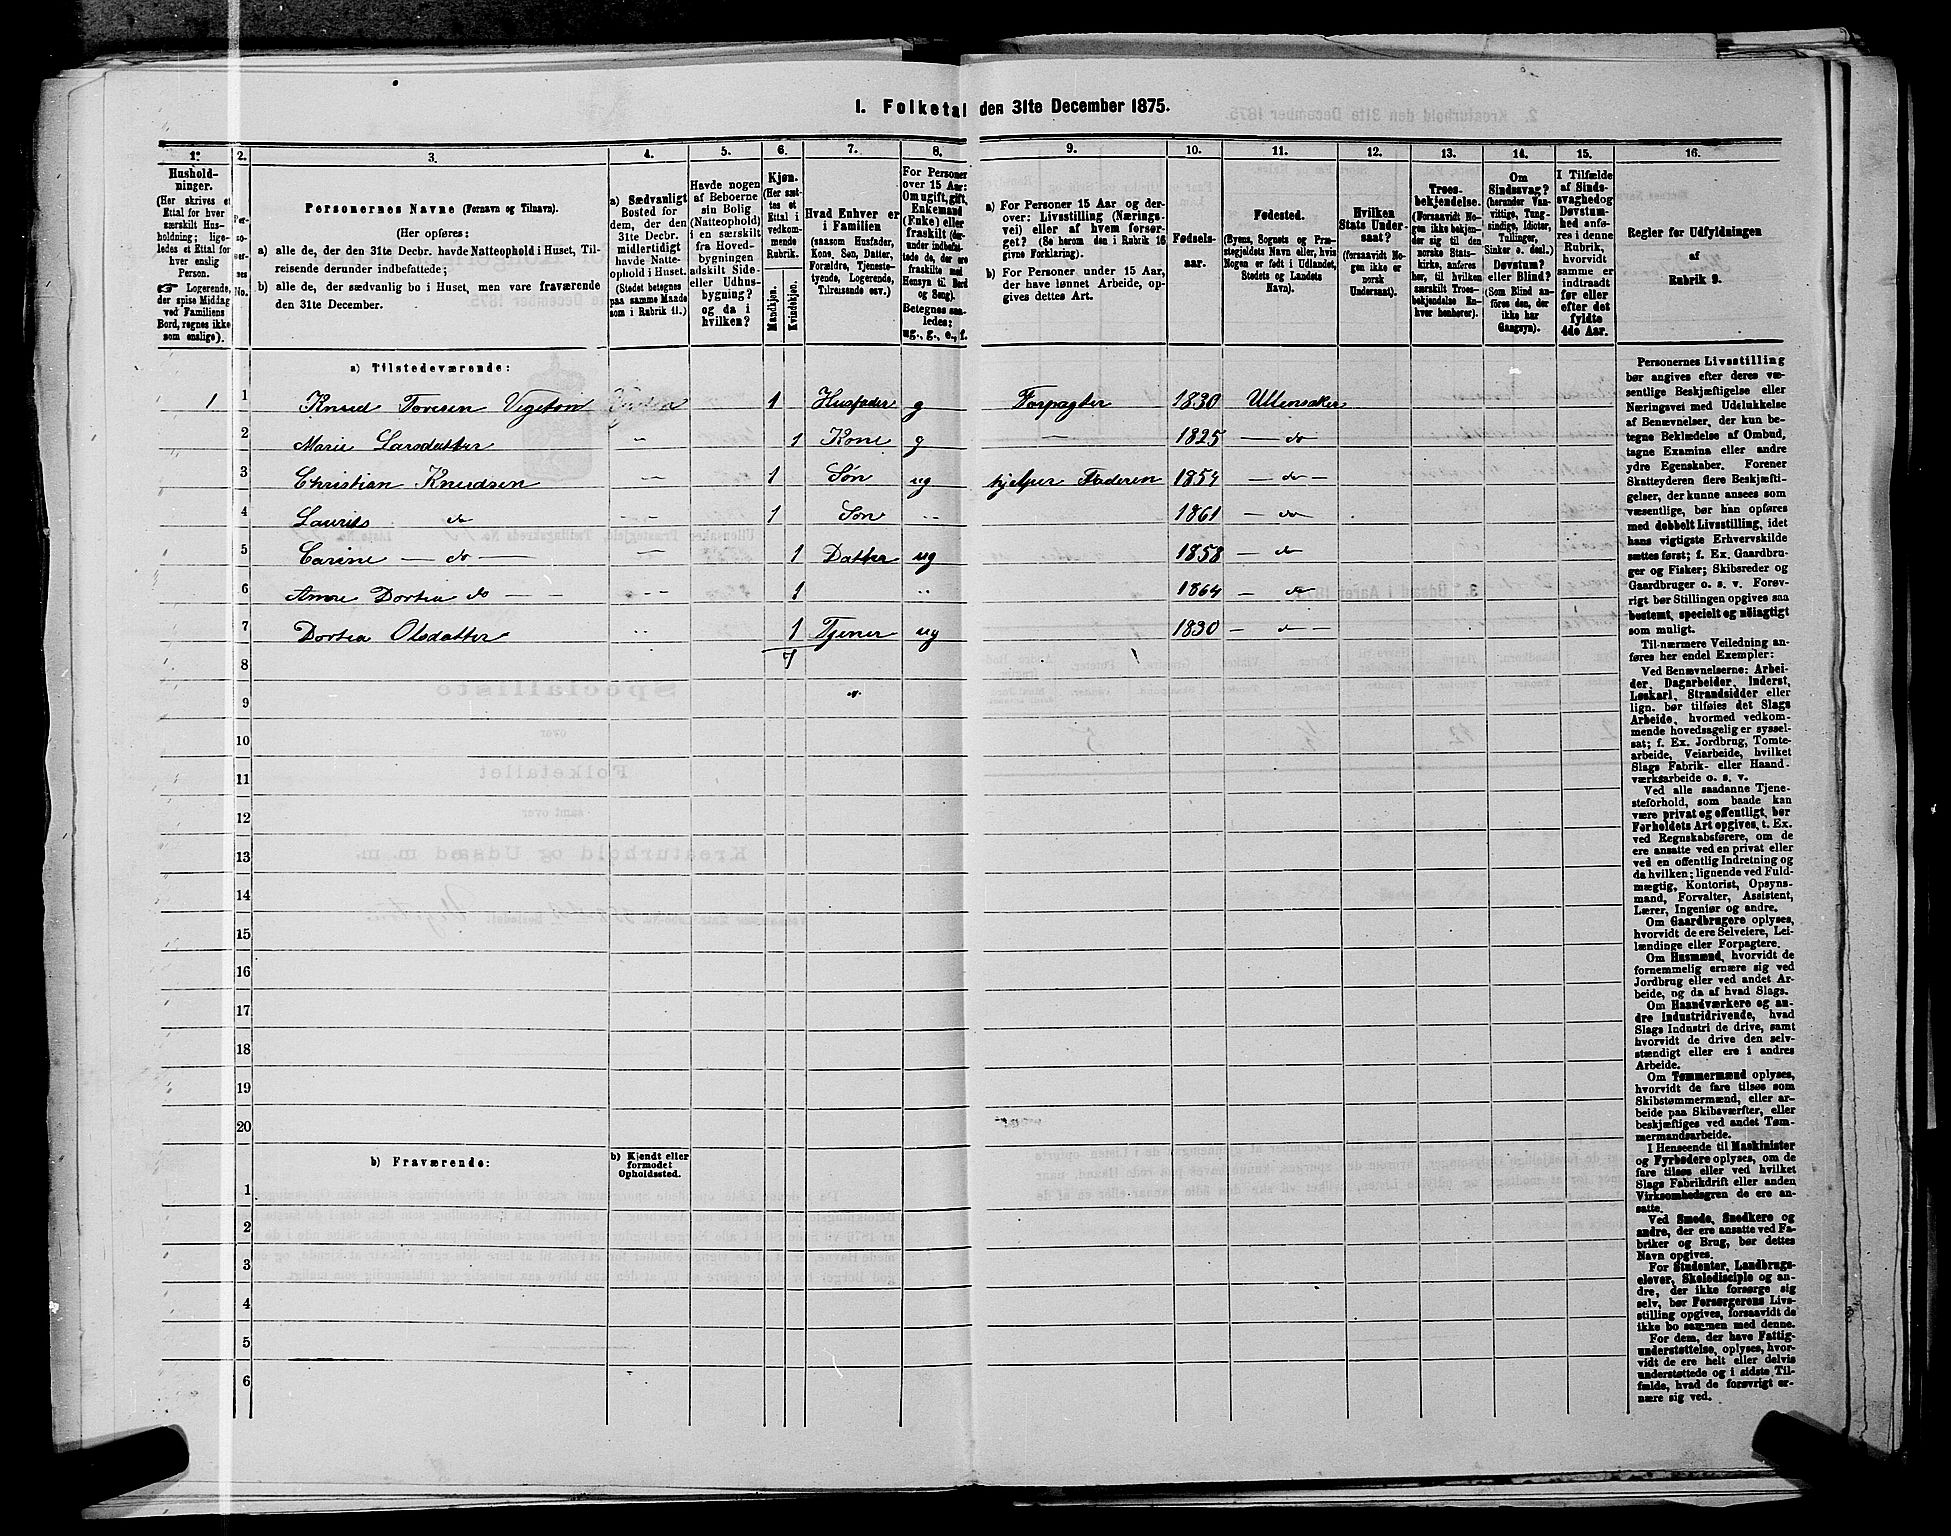 1. Folketal den 31te December 1875.
1.
Hushold-
ninger.
(Her skrives et
Ettal for hver
særskilt Hus-
holdning; lige-
ledes et Ettal for
hver enslig
Person.
☞ Logerende,
der spise Middag
ved Familiens
Bord, regnes ikke
som enslige).
2.
Per-
so-
ner-
nes
No.
3.
Personernes Navne (Fornavn og Tilnavn).
(Her opføres:
a) alle de, der den 31te Decbr. havde Natteophold i Huset, Til-
reisende derunder indbefattede;
b) alle de, der sædvanlig bo i Huset, men vare fraværende
den 31te December.
4.
a) Sædvanligt
Bosted for
dem, der den
31te Decbr.
midlertidigt
havde Natte-
ophold i Huset.
(Stedet betegnes
paa samme Maade
som i Rubrik 11.)
5.
Havde nogen
af Beboerne
sin Bolig
(Natteophold)
i en særskilt
fra Hoved-
bygningen
adskilt Side-
eller Udhus-
bygning?
og da i
hvilken?
6.
Kjøn.
(Her sæt-
tes et
Ettal i
vedkom-
mende
Rubrik.
Mandkjøn.
Kvindekjøn.
7.
Hvad Enhver er
i Familien
(saasom Husfader,
Kone, Søn, Datter,
Forældre, Tjeneste-
tyende, Logerende,
Tilreisende osv.)
8.
For Personer
over 15 Aar:
Om ugift, gift,
Enkemand
(Enke) eller
fraskilt (der-
under indbefat-
tede de, der ere
fraskilte med
Hensyn til Bord
og Seng).
Betegnes saa-
ledes:
ug., g., e., f.
9.
a) For Personer 15 Aar og der-
over: Livsstilling (Nærings-
vei) eller af hvem forsør-
get? (Se herom den i Rubrik 16
givne Forklaring).
b) For Personer under 15 Aar,
der have lønnet Arbeide, op-
gives dettes Art.
10.
Fødsels-
aar.
11.
Fødested.
(Byens, Sognets og Præ-
stegjeldets Navn eller, hvis
Nogen er født i Udlandet,
Stedets og Landets
Navn).
12.
Hvilken
Stats Under-
saat?
(forsaavidt No-
gen ikke er
norsk
Undersaat).
13.
Troes-
bekjendelse.
(Forsaavidt No-
gen ikke bekjen-
der sig til den
norske Stats-
kirke, anføres
her, til hvilken
særskilt Troes-
bekjendelse En-
hver henhører).
14.
Om
Sindssvag?
(herunder Van-
vittige, Tung-
sindige, Idioter,
Tullinger,
Sinker o. desl.)
Døvstum?
eller Blind?
(Som Blind an-
føres den, der
ikke har
Gangsyn).
15.
I Tilfælde
af Sinds-
svaghed og
Døvstum-
hed anfø-
res i denne
Rubrik,
hvorvidt
samme er
indtraadt
før eller
efter det
fyldte
4de Aar.
16.
Regler for Udfyldningen
af
Rubrik 9.
a) Tilstedeværende:
1 1 Knud Toresen Vigstein 1 Husfader g Forpagter 1830 Ullensaker
2 Marie Larsdatter – 1 Kone g — 1825 — do
3 Christian Knudsen – 1 Søn ug hjelper Faderen 1854 — do —
4 Laurits do – 1 Søn – 1861 — do
5 Carine — do — – 1 Datter ug 1858 — do
6 Anne Dortea do — – 1 1864 — do
7 Dortea Olsdatter 1 Tjener ug 1830 — do —
8 7
9
10
11
12
13
14
15
16
17
18
19
20
b) Fraværende:
b) Kjendt eller
formodet
Opholdssted.
1
2
3
4
5
6
Personernes Livsstilling
bør angives efter deres væ-
sentlige Beskjæftigelse eller
Næringsvei med Udelukkelse
af Benævnelser, der kun be-
tegne Beklædelse af Ombud,
tagne Examina eller andre
ydre Egenskaber. Forener
Skatteyderen flere Beskjæfti-
gelser, der kunne ansees som
væsentlige, bør han opføres
med dobbelt Livsstilling, idet
hans vigtigste Erhvervskilde
sættes først; f. Ex. Gaardbru-
ger og Fisker; Skibsreder og
Gaardbruger o. s. v. Forøv-
rigt bør Stillingen opgives saa
bestemt, specielt og nøiagtigt
som muligt.
Til nærmere Veiledning an-
føres her endel Exempler:
Ved Benævnelserne: Arbei-
der, Dagarbeider, Inderst,
Løskarl, Strandsidder eller
lign. bør tilføies det Slags
Arbeide, hvormed vedkom-
mende hovedsagelig er syssel-
sat; f. Ex. Jordbrug, Tomte-
arbeide, Veiarbeide, hvilket
Slags Fabrik- eller Haand-
værksarbeide o. s. v.
Ved alle saadanne Tjene-
steforhold, som baade kan
være privat og offentligt, bør
Forholdets Art opgives, t. Ex.
ved Regnskabsførere, om de
ere ansatte ved en privat eller
ved en offentlig Indretning og
da hvilken; lignende ved Fuld-
mægtig, Kontorist, Opsyns-
mand, Forvalter, Assistent,
Lærer, Ingeniør og andre.
Om Gaardbrugere oplyses,
hvorvidt de ere Selveiere, Lei-
lændinge eller Forpagtere.
Om Husmænd, hvorvidt de
fornemmelig ernære sig ved
Jordbrug eller ved andet Ar-
beide, og da af hvad Slags.
Om Haandværkere og an-
dre Industridrivende, hvad
Slags Industri de drive, samt
hvorvidt de drive den selv-
stændigt eller ere i andres
Arbeide.
Om Tømmermænd oplyses,
hvorvidt de fare tilsøs som
Skibstømmermænd, eller ar-
beide paa Skibsværfter, eller
beskjæftiges ved andet Tøm-
mermandsarbeide.
I Henseende til Maskinister
og Fyrbødere oplyses, om de
fare tilsøs eller ved hvilket
Slags Fabrikdrift eller anden
Virksomhedsgren de ere an-
satte.
Ved Smede, Snedkere og
andre, der ere ansatte ved Fa-
briker og Brug, bør dettes
Navn opgives.
For Studenter, Landbrugs-
elever, Skoledisciple og an-
dre, der ikke forsørge sig
selv, bør Forsørgerens Livs-
stilling opgives, forsaavidt de
ikke bo sammen med denne.
For dem, der have Fattig-
understøttelse, oplyses, hvor-
vidt de ere helt eller delvis
understøttede og i sidste Til-
fælde, hvad de forøvrigt er-
nære sig ved.